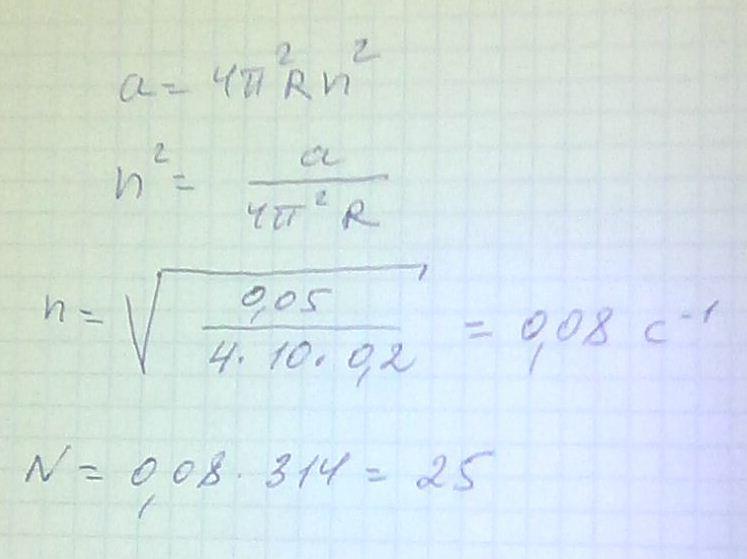 a = 4π²Rn²
n² = a / 4π²R
n = √(0,05 / 4·10·0,2) = 0,08 с⁻¹
N = 0,08 · 314 = 25